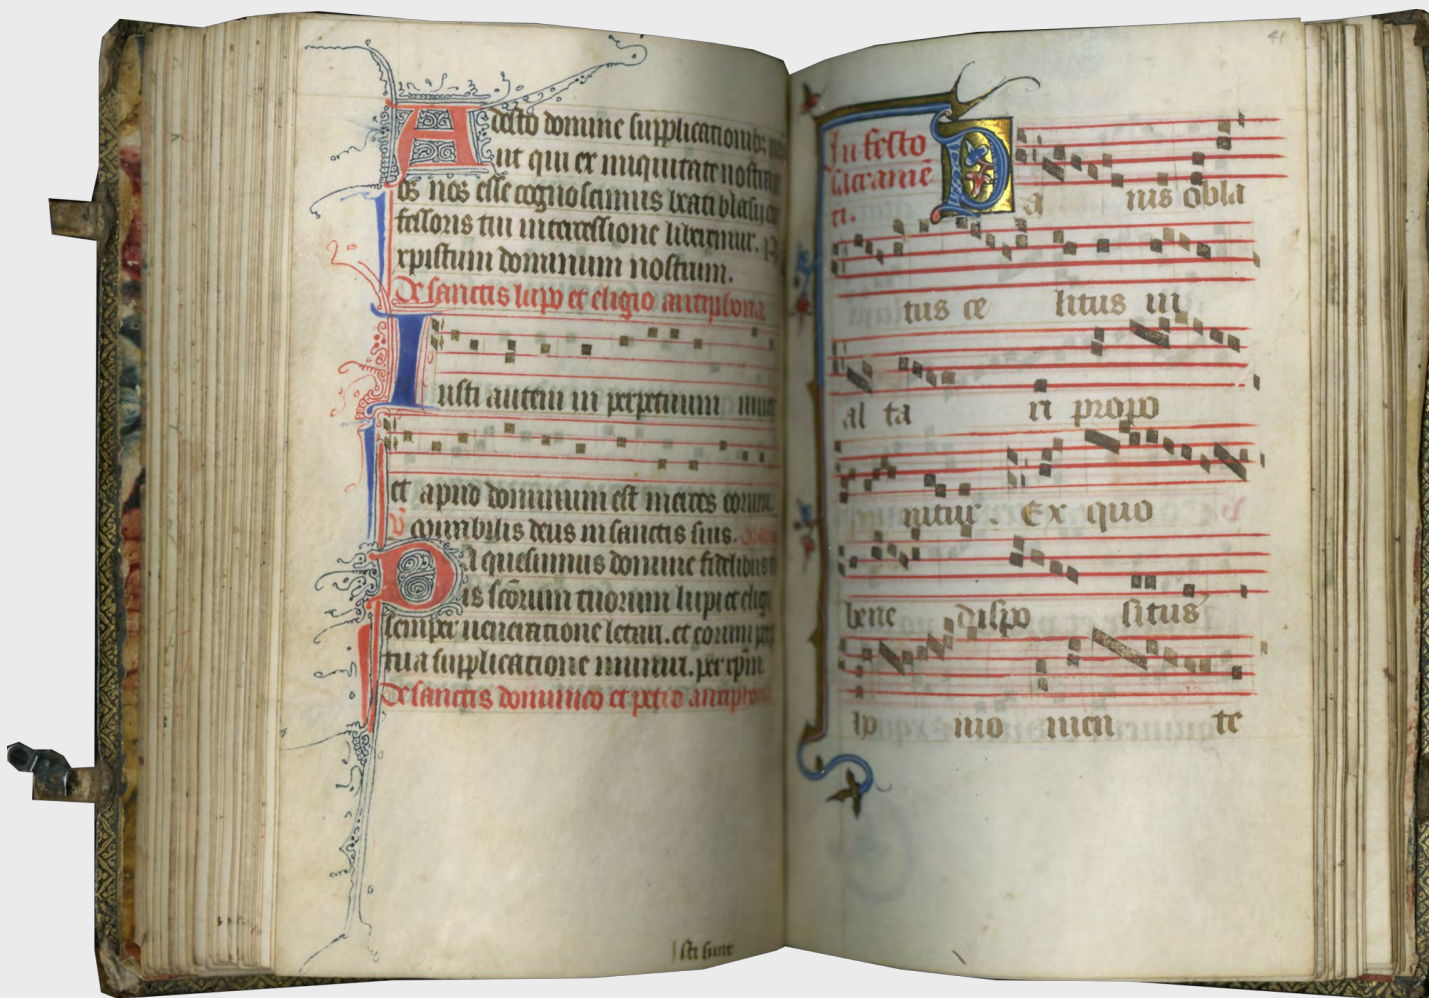 Adesto domine supplicationibz
ut qui ex iniquitate nostra
os nos esse cognoscimus beati blasij
fessoris tui intercessione liberemur.
xpistum dominum nostrum.
De sanctis lupo et eligio antiphona
Iusti autem in perpetuum
et apud dominum est merces eorum
mirabilis deus in sanctis suis.
Da quesumus domine fidelibus
is scorum tuorum lupi et eligij
semper ueneratione letari. et eorum
tua supplicatione muniri. per xpm
De sanctis dominico et petro antiphona
sti sunt
41
In festo
sacrame
ti.
Panis obla
tus celitus in
al tari propo
nitur. Ex quo
bene dispo situs
ip mo men te